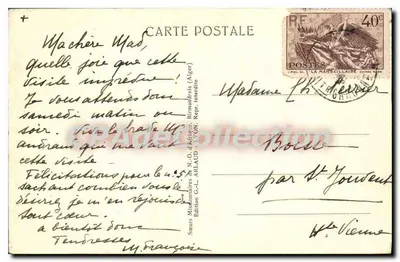 CARTE POSTALE
RF
40c
POSTES
LA MARSEILLAISE
Ma chère Mad,
quelle joie que cette
visite
Je vous attends donc
samedi matin ou
soir. Vive le
que me vaut
cette visite.
Félicitations pour le
sachant combien vous le
désirez je m'en réjouis de
tout cœur.
a bientôt donc
Tendresses
M. Françoise
Sœurs Missionnaires de N.-D. d'Afrique, Birmandreis (Alger)
Edition G.-L. ARLAUD LYON. Repr. interdite
Madame
Boisse
par St Jouvent
Hte Vienne